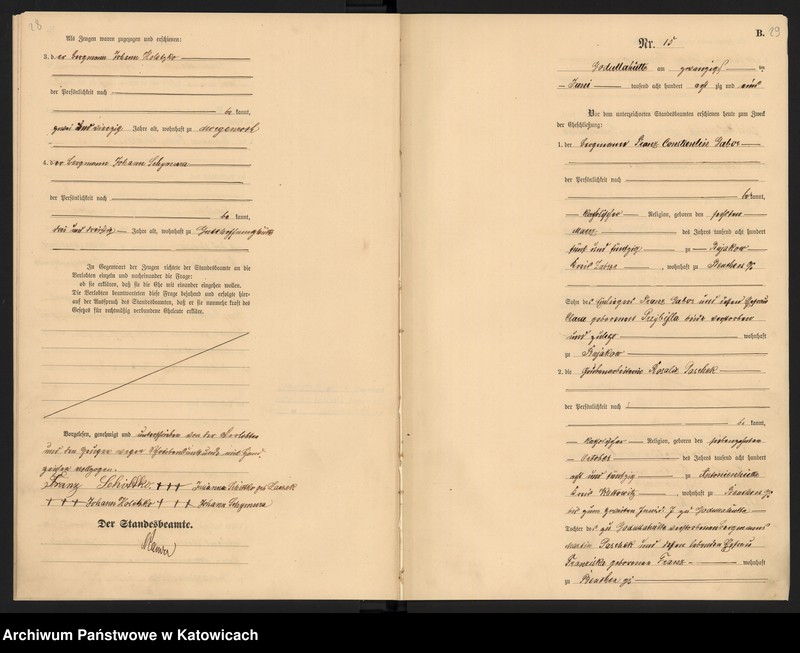 28
Als Zeugen waren zugezogen und erschienen:
3. der Bergmann Johann Kolotzko
der Persönlichkeit nach
be kannt,
zwei und vierzig Jahre alt, wohnhaft zu Morgenroth
4. der Bergmann Johann Schymura
der Persönlichkeit nach
be kannt,
drei und dreißig Jahre alt, wohnhaft zu
In Gegenwart der Zeugen richtete der Standesbeamte an die
Verlobten einzeln und nacheinander die Frage:
ob sie erklären, daß sie die Ehe mit einander eingehen wollen.
Die Verlobten beantworteten diese Frage bejahend und erfolgte hier-
auf der Ausspruch des Standesbeamten, daß er sie nunmehr kraft des
Gesetzes für rechtmäßig verbundene Eheleute erkläre.
Vorgelesen, genehmigt und unterschrieben von den Verlobten
und den Zeugen wegen Schreibensunkunde mit Hand-
zeichen vollzogen.
Franz +++
+++ Johann Kolotzko +++ Johann Schymura
Der Standesbeamte.
B. 29
Nr. 15
Godullahütte am zwanzigsten
Juni tausend acht hundert acht zig und eins
Vor dem unterzeichneten Standesbeamten erschienen heute zum Zweck
der Eheschließung:
1. der Bergmann Franz Constantin Gabor
der Persönlichkeit nach
be kannt,
katholischer Religion, geboren den
März des Jahres tausend acht hundert
fünf und fünfzig zu Rajakow
Kreis , wohnhaft zu Beuthen O/S
Sohn des Franz Gabor und dessen Ehefrau
Klara geborenen Przybylla beide verstorben
und zuletzt wohnhaft
zu Rajakow
2. die Grubenarbeiterin Rosalie Paschek
der Persönlichkeit nach
be kannt,
katholischer Religion, geboren den siebenzehnten
October des Jahres tausend acht hundert
acht und fünfzig zu Antonienhütte
Kreis Kattowitz , wohnhaft zu Beuthen O/S
bis zum zweiten Juni d. J. zu Godullahütte
Tochter des zu Godullahütte verstorbenen Bergmanns
Martin Paschek und dessen lebenden Ehefrau
Franciska geborenen Franz wohnhaft
zu Beuthen O/S
Archiwum Państwowe w Katowicach